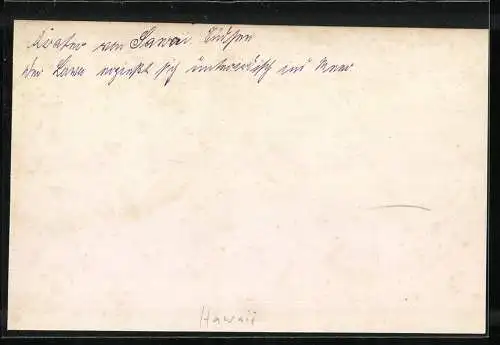 Krater von Sawaii Südsee
der Lava ergießt sich unterirdisch ins Meer.
Hawaii